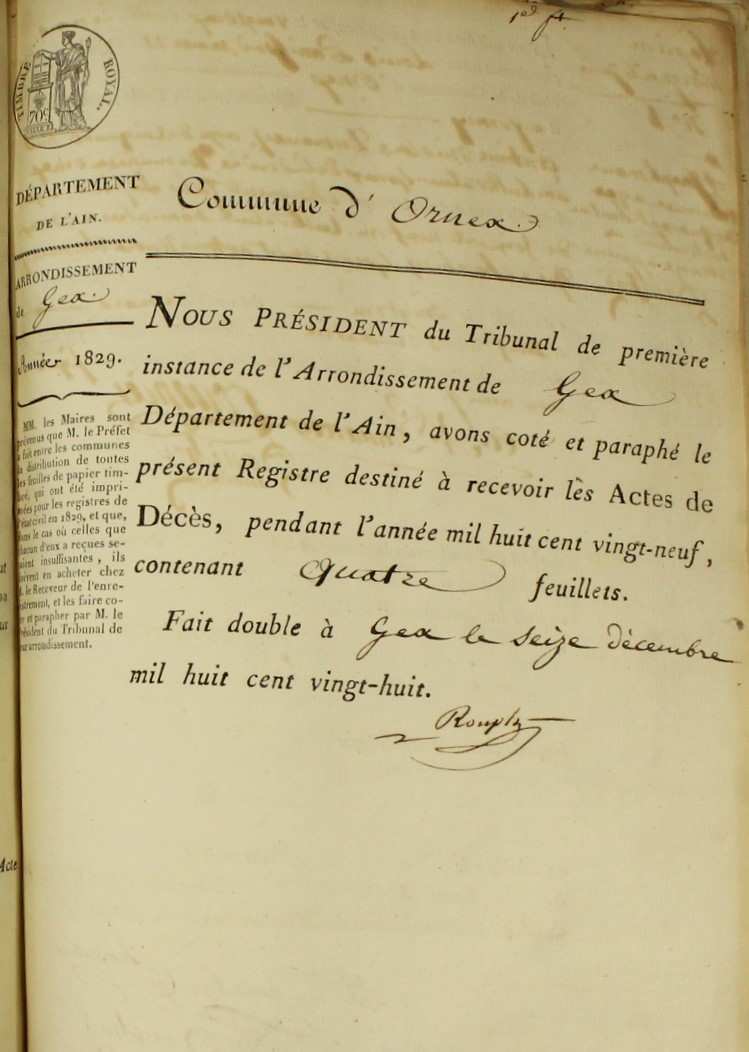 1er ft
TIMBRE ROYAL.
70c
DÉPARTEMENT
DE L'AIN.
ARRONDISSEMENT
de Gex.
Année 1829.
MM. les Maires sont
prévenus que M. le Préfet
a fait entre les communes
la distribution de toutes
les feuilles de papier tim-
bré, qui ont été impri-
mées pour les registres de
l'état civil en 1829, et que,
dans le cas où celles que
chacun d'eux a reçues se-
raient insuffisantes, ils
doivent en acheter chez
M. le Receveur de l'enre-
gistrement, et les faire co-
ter et parapher par M. le
Président du Tribunal de
leur arrondissement.
Commune d' Ornex.
NOUS PRÉSIDENT du Tribunal de première
instance de l'Arrondissement de Gex
Département de l'Ain, avons coté et paraphé le
présent Registre destiné à recevoir les Actes de
Décès, pendant l'année mil huit cent vingt-neuf,
contenant quatre feuillets.
Fait double à Gex le seize décembre
mil huit cent vingt-huit.
Acte